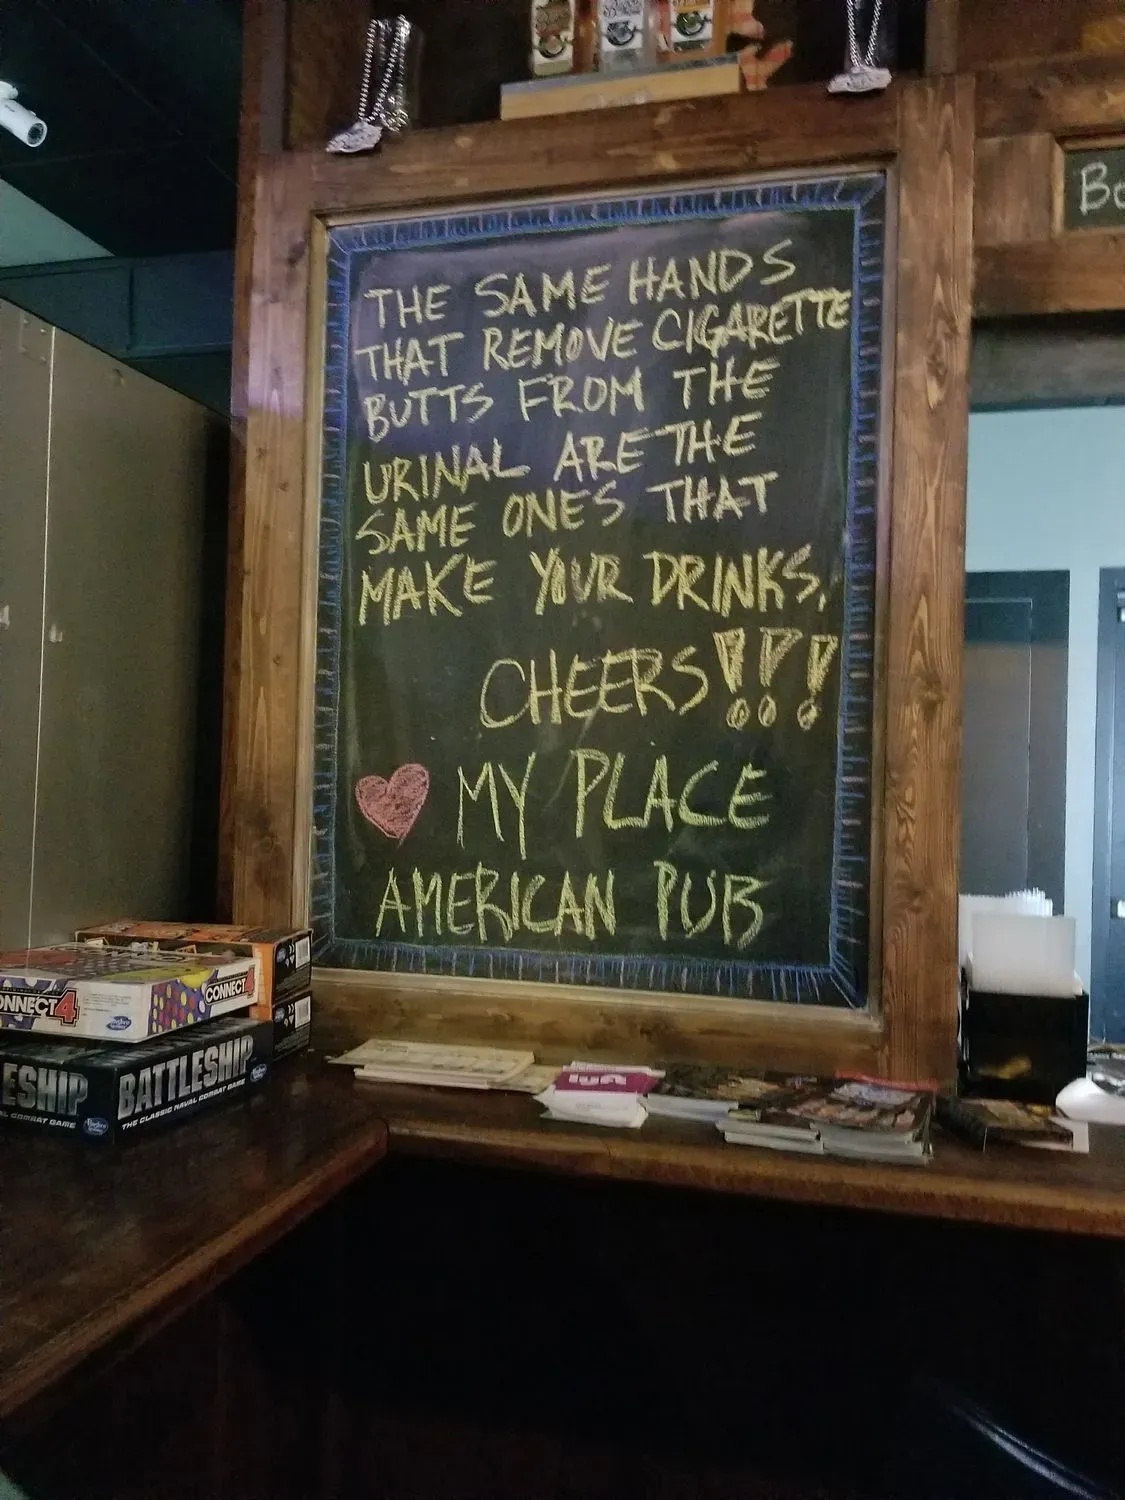 THE SAME HANDS
THAT REMOVE CIGARETTE
BUTTS FROM THE
URINAL ARE THE
SAME ONES THAT
MAKE YOUR DRINKS,
CHEERS!!!
MY PLACE
AMERICAN PUB
CONNECT 4
BATTLESHIP
THE CLASSIC NAVAL COMBAT GAME
lyft